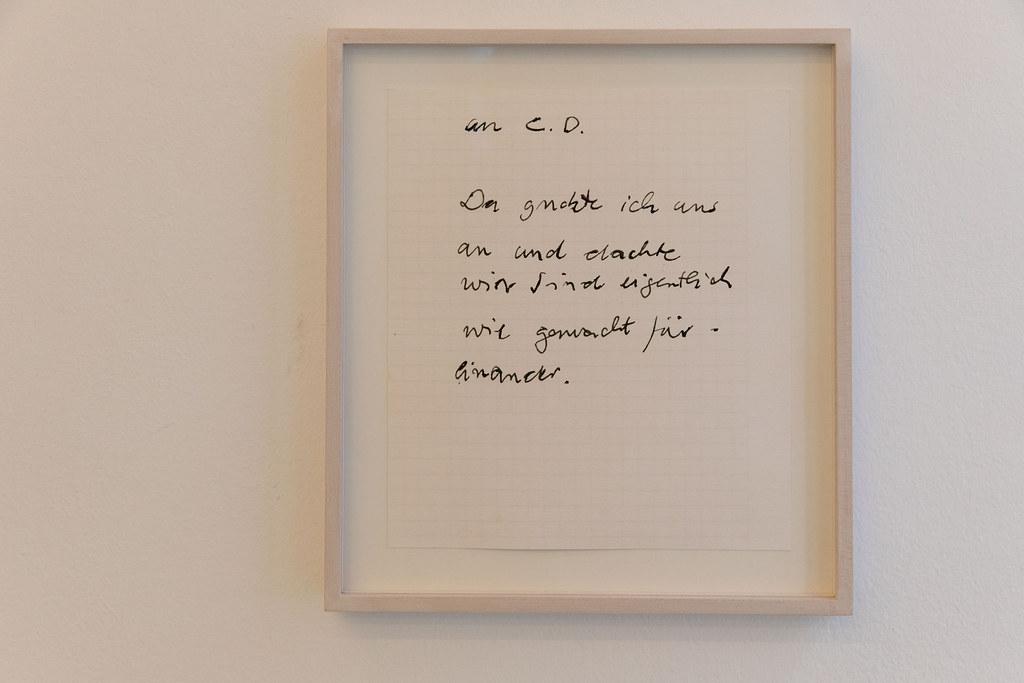 an C.D.
Da guckte ich uns
an und dachte
wir sind eigentlich
wie gemacht für-
einander.